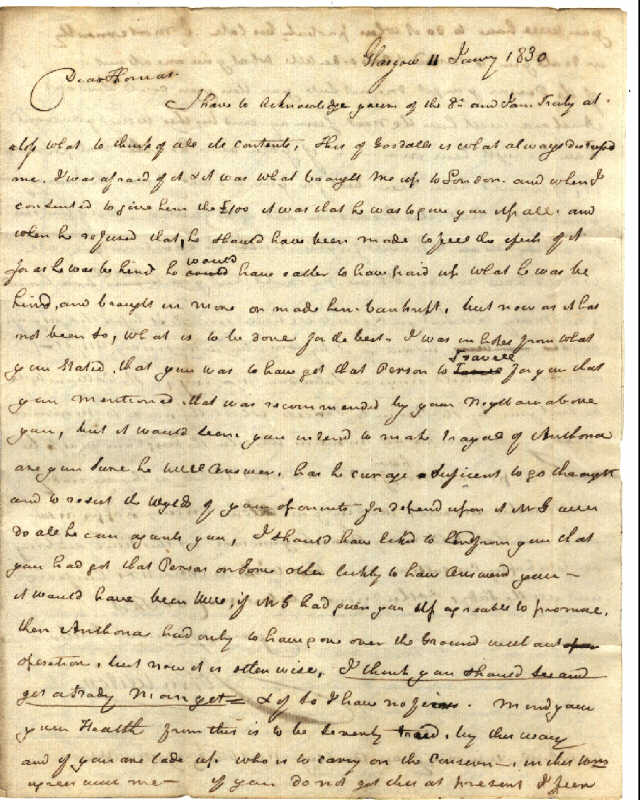 Glasgow 11 Jany 1830
Dear Thomas
I have to Acknowledge yours of the 8th and I am Truly at
a loss what to think of all its contents, this of Goodalls is what always distressed
me. I was afraid of it & it was what brought me up to London. and when I
consented to give him the £100 it was that he was to give you up all. and
when he refused that, he should have been made to feel the efects of it
for as he was behind he would could have rather to have paid up what he was be
hind, and brought in more or made him bankrupt, but now as it has
not been so, what is to be done for the best. I was in hopes from what
you stated, that you was to have got that Person to Travell for you that
you mentioned that was recommended by your above
you, but it would seem you intend to make of Anthona
are you sure he will Answer, has he curage suficent to go through
and to resist the of your oponents for depend upon it Mr G will
do all he can against you, I should have liked to from you that
you had got that Person or some other likely to have Answerd your
it would have been well, if Mr G had given you up agreable to promise,
then Anthona had only to have gone over the Ground without
oposition, but now it is otherwise, I think you should see and
get a Man yet & if so I have no fears. Mind your
your Health from this is to be by this way
and if you are laid up who is to carry on the Concern, in this
agree with me if you do not get this at present I